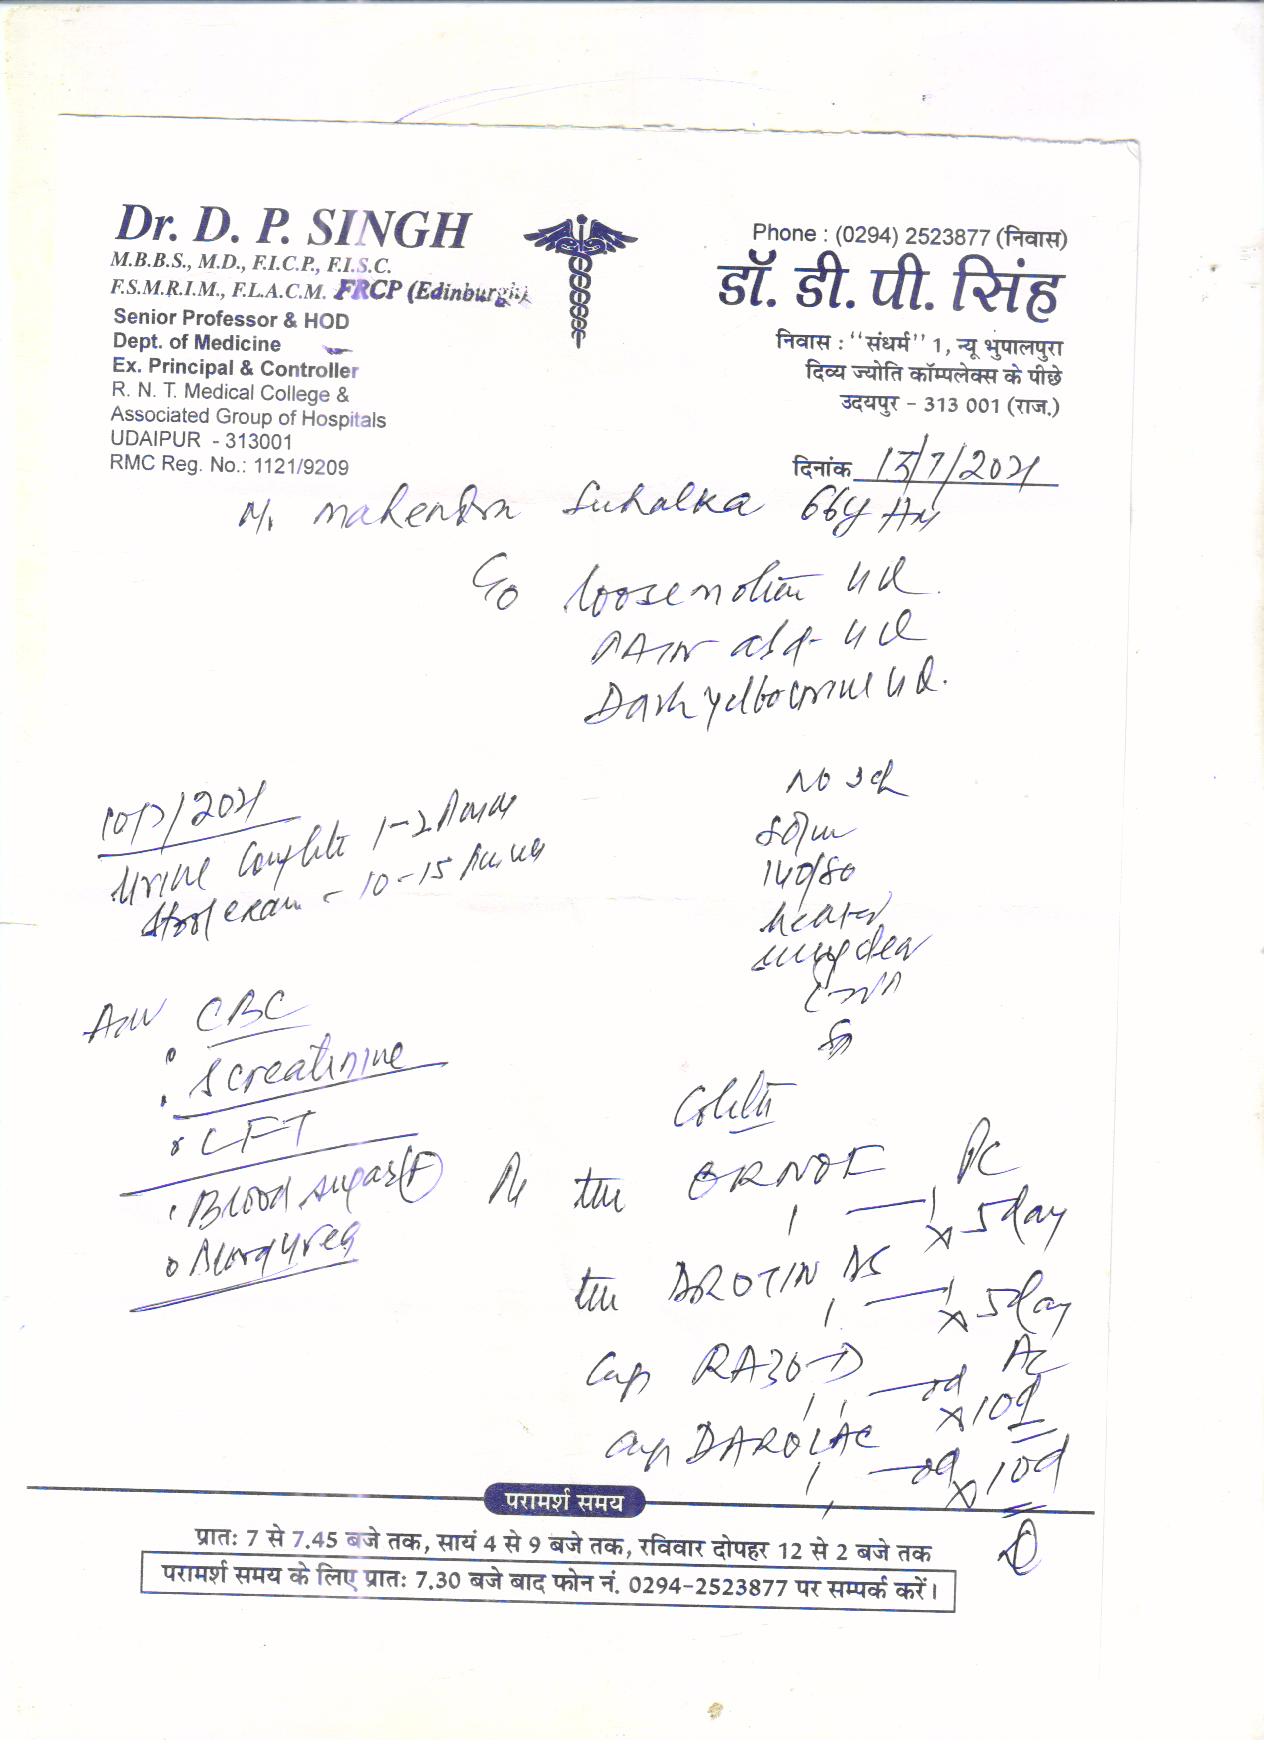 Dr. D. P. SINGH
M.B.B.S., M.D., F.I.C.P., F.I.S.C.
F.S.M.R.I.M., F.L.A.C.M. FRCP (Edinburgh)
Senior Professor & HOD
Dept. of Medicine
Ex. Principal & Controller
R. N. T. Medical College &
Associated Group of Hospitals
UDAIPUR - 313001
RMC Reg. No.: 1121/9209
Phone : (0294) 2523877 (निवास)
डॉ. डी. पी. सिंह
निवास : "संधर्म" 1, न्यू भुपालपुरा
दिव्य ज्योति कॉम्पलेक्स के पीछे
उदयपुर - 313 001 (राज.)
दिनांक /7/2021
Mahendra Suhalka 66y
C/o loose motion 4d
PAIN abd 4d
Dark yellow urine 4d.
/2021
Urine Complete 1-2
Stool exam - 10-15
140/80
CBC
S creatinine
LFT
Blood sugar (F)
Blood urea
ORNOF PC
1 — 1 x 5day
DROTIN DS
1 — 1 x 5day
Cap RAZO-D AC
1 — od x 10d
Cap DAROLAC
1 — od x 10d
परामर्श समय
प्रातः 7 से 7.45 बजे तक, सायं 4 से 9 बजे तक, रविवार दोपहर 12 से 2 बजे तक
परामर्श समय के लिए प्रातः 7.30 बजे बाद फोन नं. 0294-2523877 पर सम्पर्क करें।